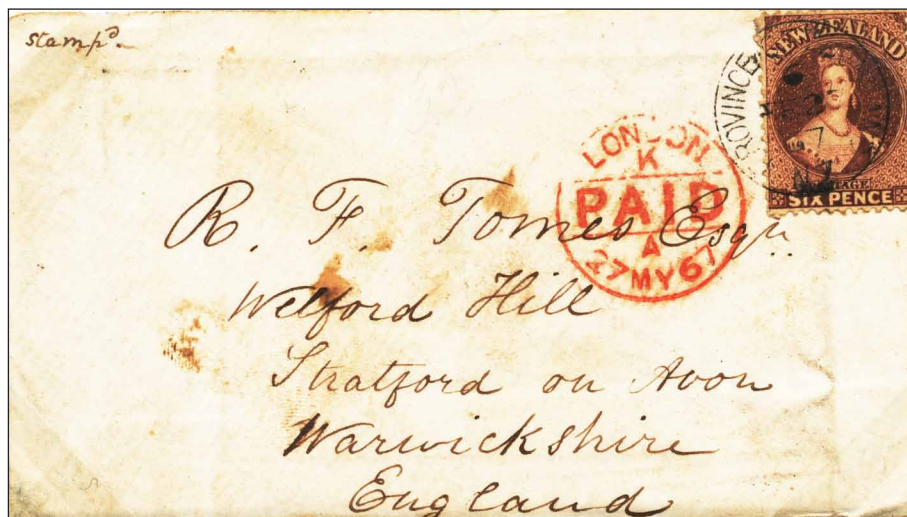 stampd.
NEW ZEALAND
POSTAGE
SIX PENCE
PROVINCE
LONDON
K
PAID
A
27 MY 67
R. F. Tomes Esqr.
Welford Hill
Stratford on Avon
Warwickshire
England